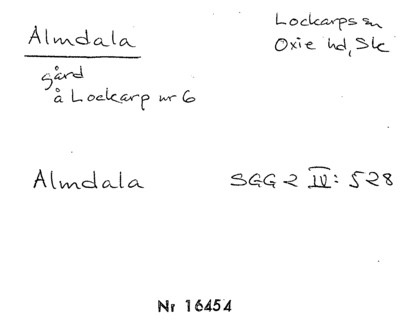 Almdala
Lockarps sn
Oxie hd, Sk
gård
å Lockarp nr 6
Almdala
SGG 2 IV: 528
Nr 16454